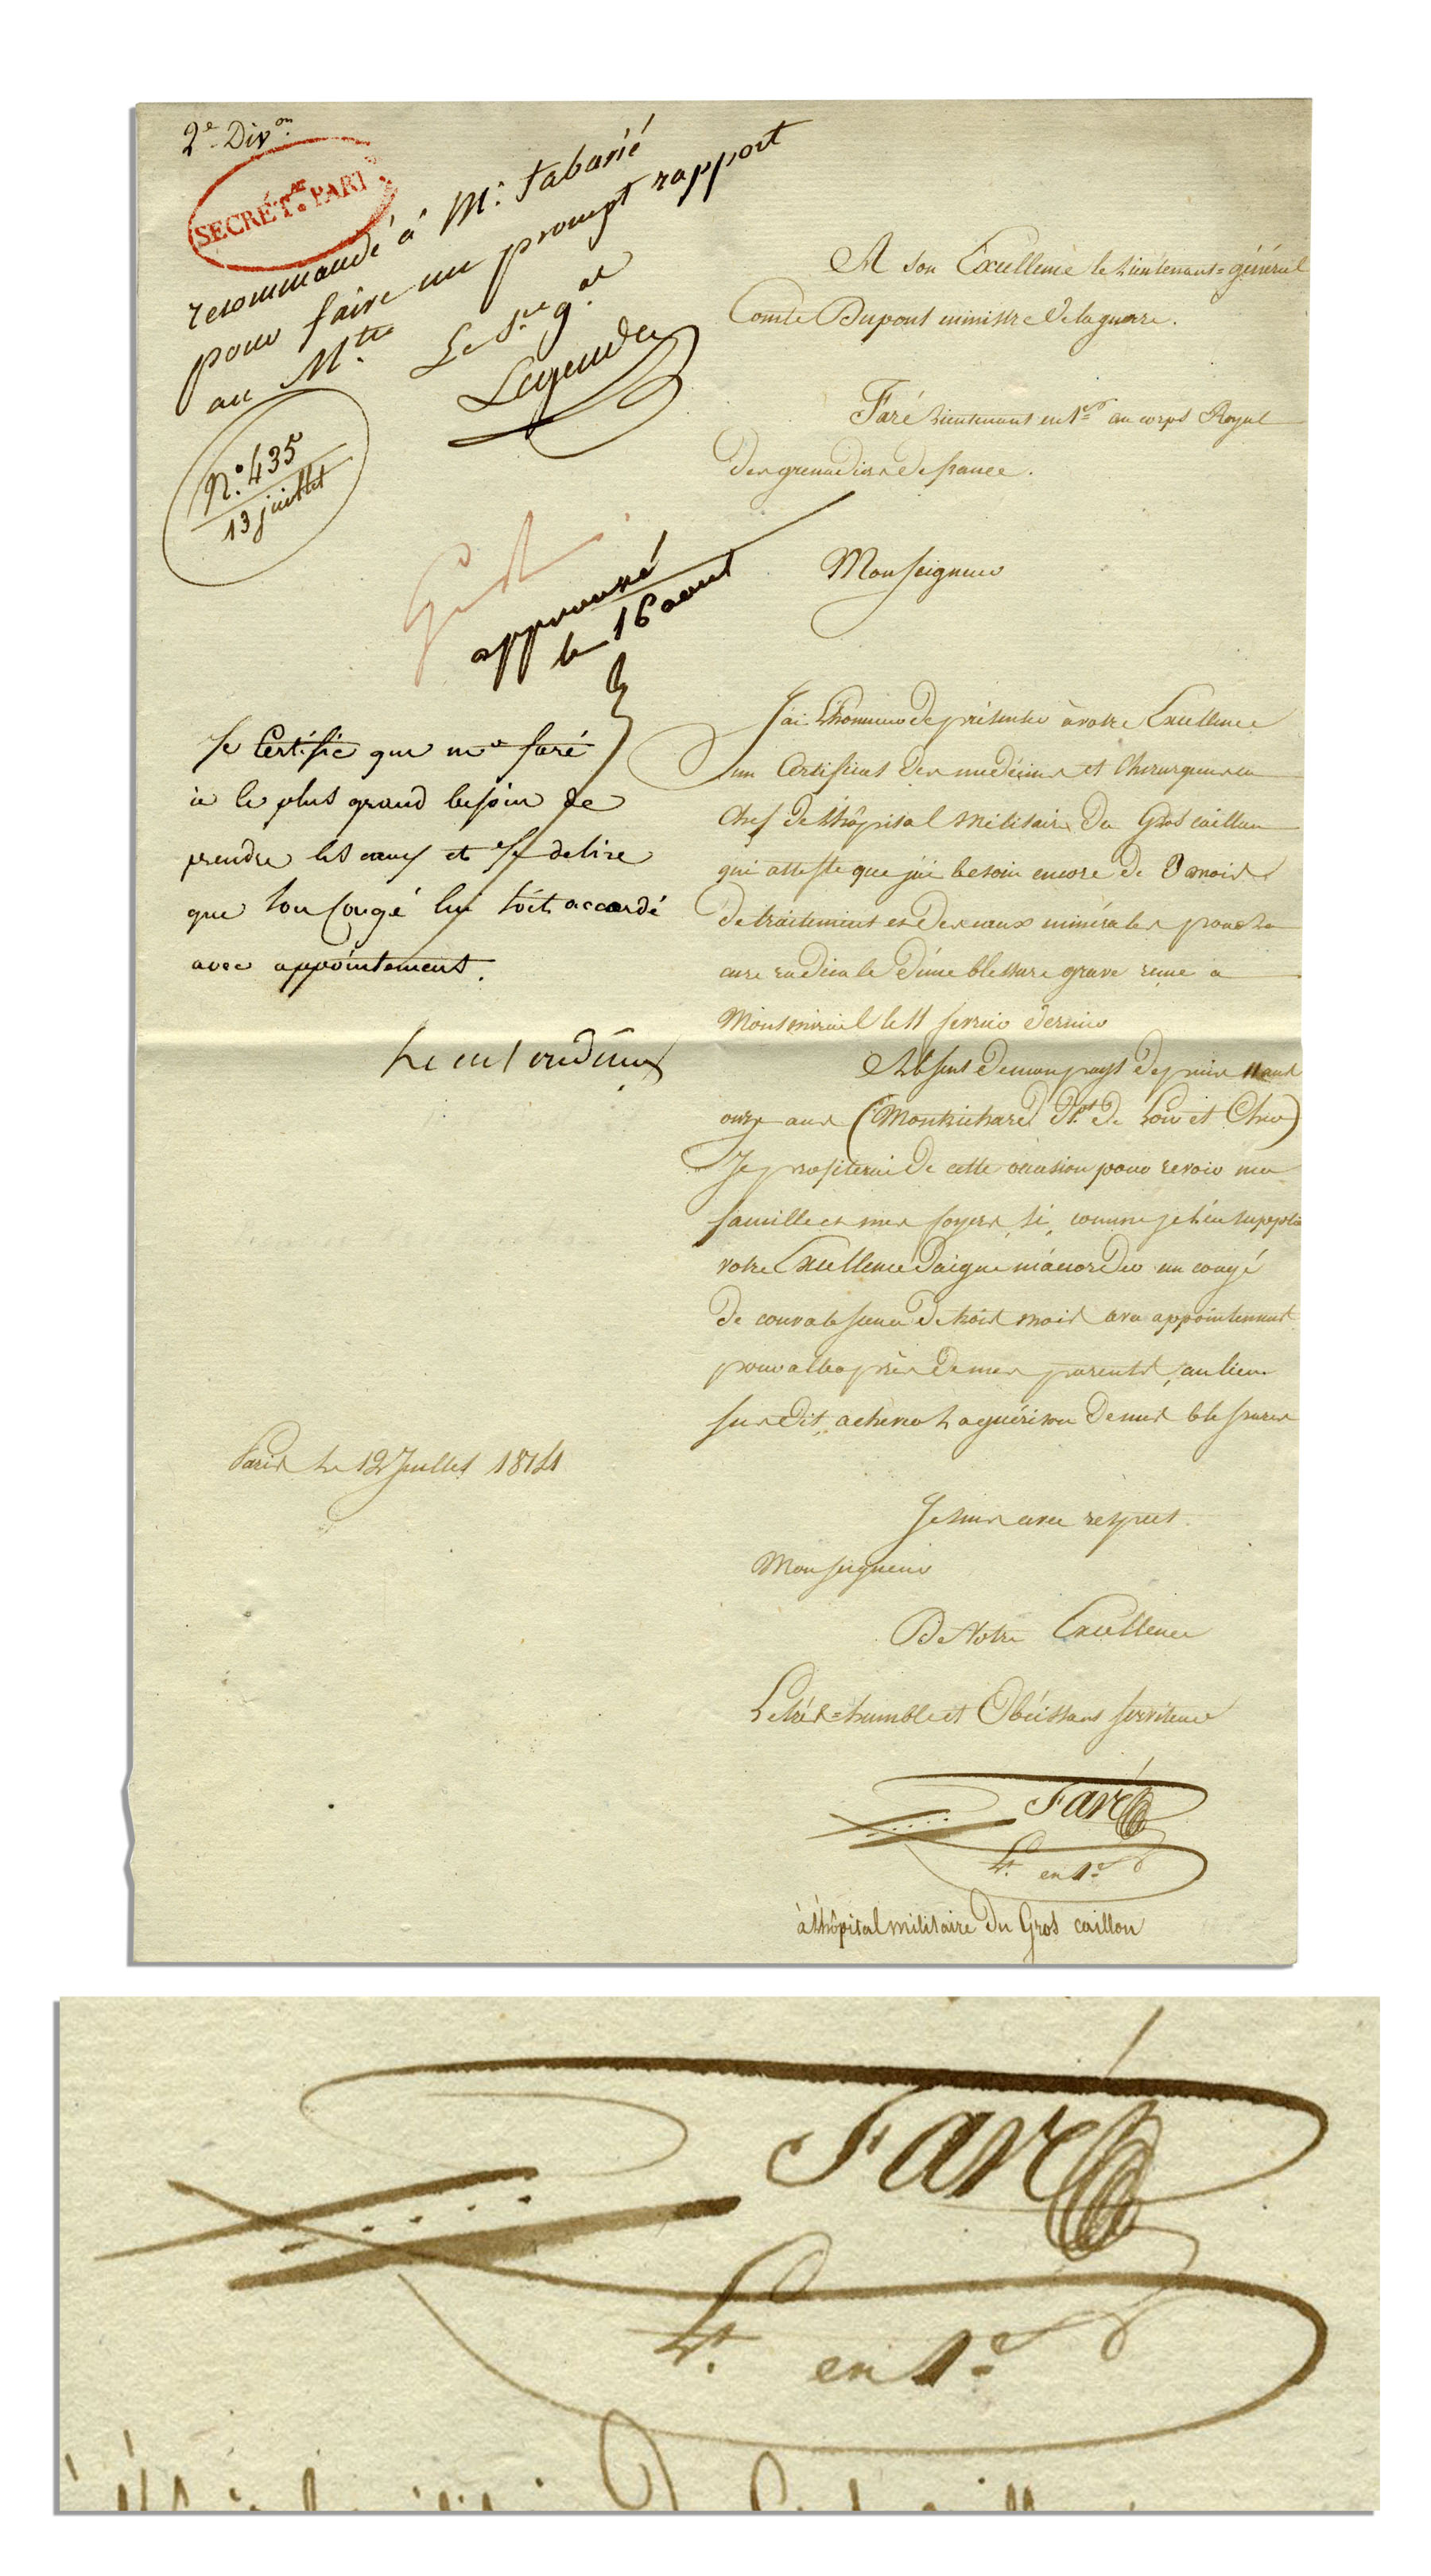 2e Divon
SECRÉTat. PARTr
recommandé à Mr. Tabarié
pour faire un prompt rapport
au Mtre
Le S.re g.al
Legendre
N.o 435
13 juillet
approuvé
le 16 aout
Je Certifie que mr faré
a le plus grand besoin de
prendre les eaux et Je desire
que son Congé lui soit accordé
avec appointement.
Paris Le 12 Juillet 1814
A Son Excellence le Lieutenant=général
Comte Dupont ministre de la guerre.
Faré Lieutenant en 1er au corps Royal
des grenadiers de france.
Monseigneur
J'ai L'honneur de présenter à votre Excellence
un Certificat des médecins et Chirurgiens en
Chef de L'hôpital Militaire du Gros caillou
qui atteste que j'ai besoin encore de 3 mois
de traitement et des eaux minérales pour La
cure radicale d'une blessure grave reçue a
Montmirail le 11 fevrier dernier
Absent de mon pays depuis 11 ans
onze ans (Montrichard Dt. de Loir et Cher)
Je profiterai de cette occasion pour revoir ma
famille et mes foyers, si, comme je L'en supplie
votre Excellence daigne m'accorder un congé
de convalescence de trois mois avec appointement
pour aller près de mes parents, au lieu
susdit, achever La guérison de mes blessures
Je suis avec respect
Monseigneur
De Votre Excellence
Le très=humble et Obéissant serviteur
Faré
Lt. en 1er
à L'hôpital militaire du Gros caillou
Faré
Lt. en 1er